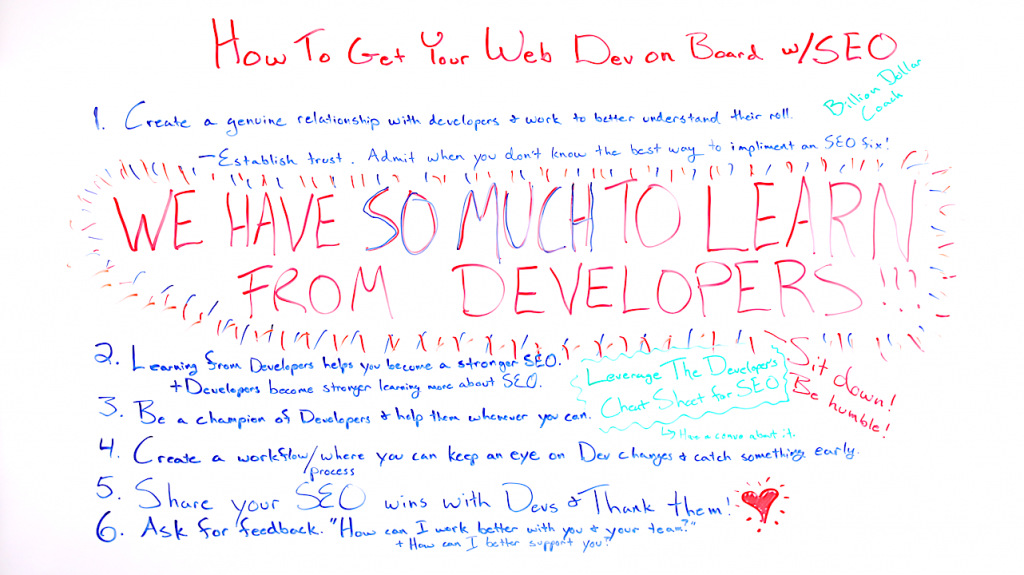 How To Get Your Web Dev on Board w/SEO
Billion Dollar
Coach
1. Create a genuine relationship with developers & work to better understand their roll.
– Establish trust. Admit when you don't know the best way to impliment an SEO fix!
WE HAVE SO MUCH TO LEARN
FROM DEVELOPERS!!!
2. Learning from Developers helps you become a stronger SEO.
+ Developers become stronger learning more about SEO.
Leverage The Developers
Cheat Sheet for SEO
↳ Have a convo about it.
Sit down!
Be humble!
3. Be a champion of Developers & help them whenever you can.
4. Create a workflow/where you can keep an eye on Dev changes & catch something early.
process
5. Share your SEO wins with Devs & Thank them!
6. Ask for feedback. "How can I work better with you & your team?"
+ How can I better support you?